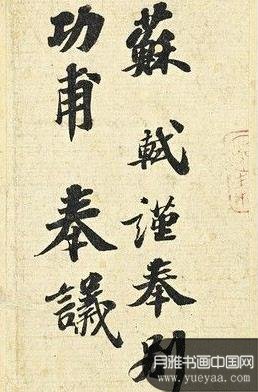 蘇軾謹奉別
功甫奉議
月雅书画中国网
www.yueyaa.com